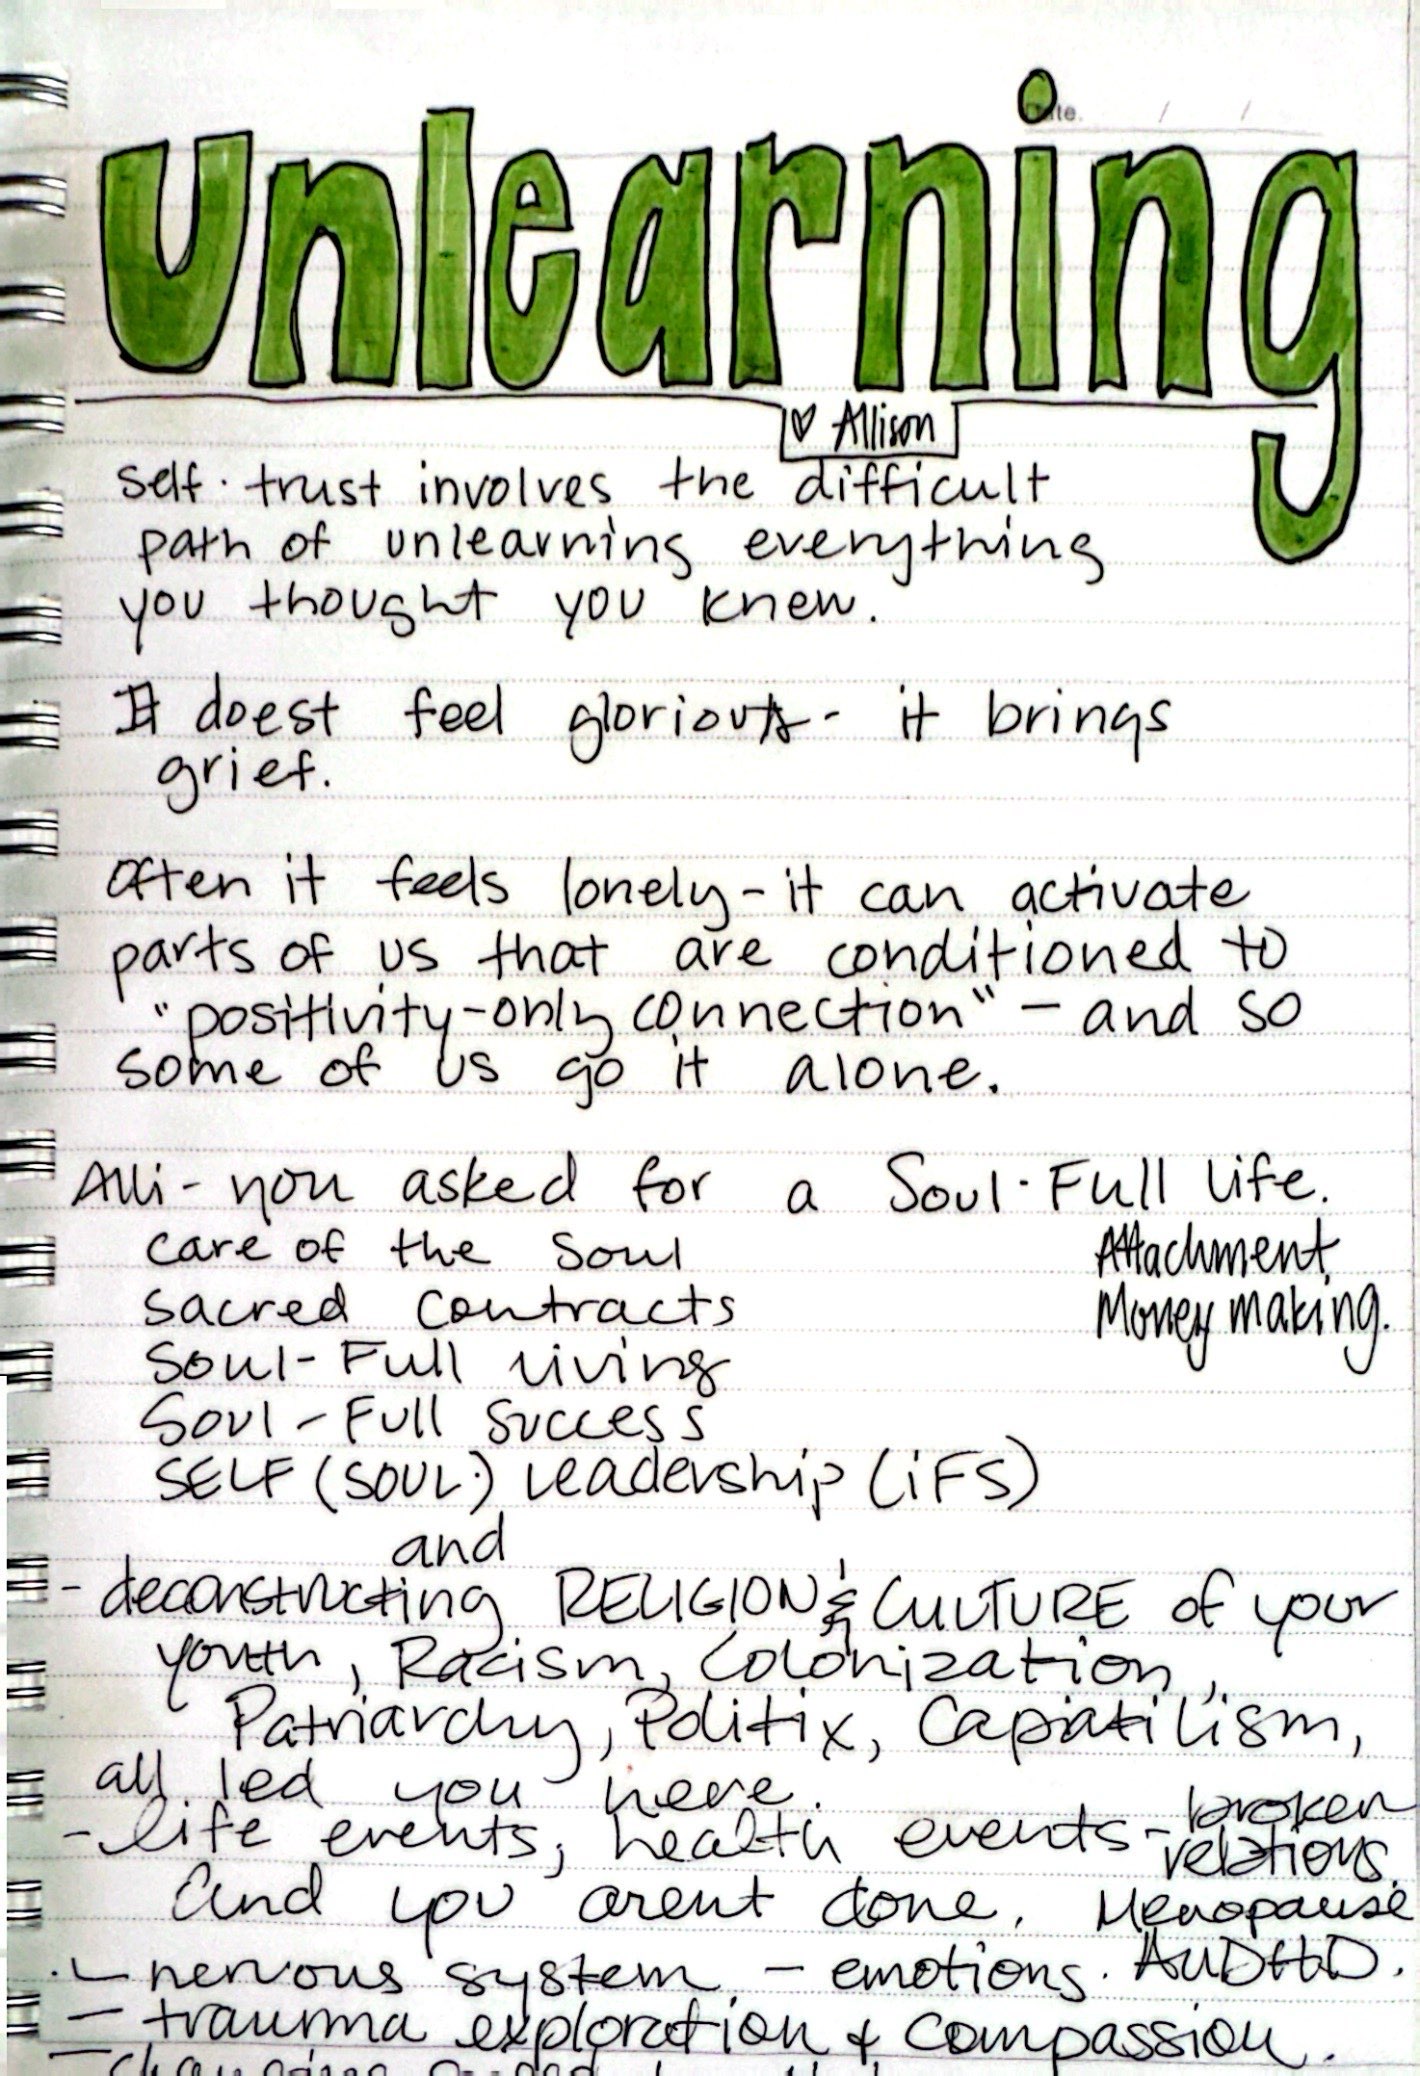 Date. / /
unlearning
♡ Allison
self·trust involves the difficult
path of unlearning everything
you thought you knew.
It doest feel glorious - it brings
grief.
Often it feels lonely - it can activate
parts of us that are conditioned to
"positivity-only connection" - and so
some of us go it alone.
Alli - you asked for a Soul·Full life.
care of the Soul
Attachment
Sacred Contracts
Money making.
Soul-Full living
Soul-Full Success
SELF (SOUL) Leadership (iFS)
and
- deconstructing RELIGION & CULTURE of your
youth, Racism, Colonization,
Patriarchy, Politix, Capiatilism,
all led you here.
- life events, health events - broken
relations
And you arent done. Menopause
- nervous system - emotions. AuDHD.
- trauma exploration & compassion.